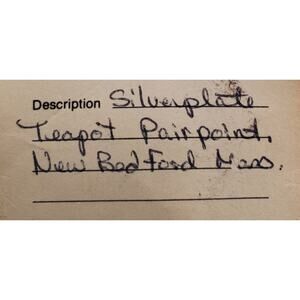 Description Silverplate
Teapot Pairpoint,
New Bedford Mass.